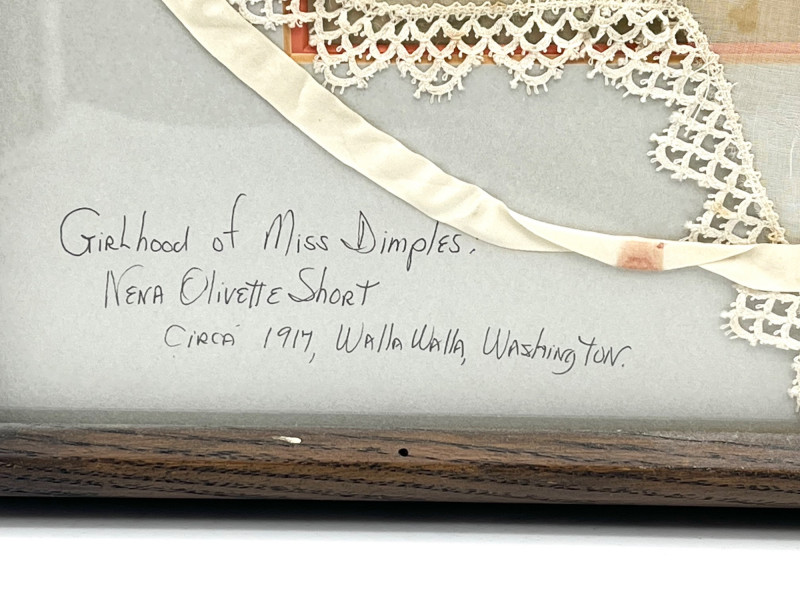 Girlhood of Miss Dimples;
Nena Olivette Short
Circa 1917, Walla Walla, Washington.